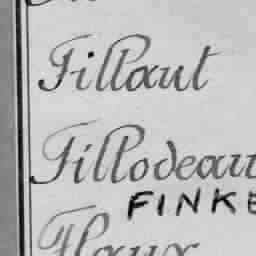 Fillaut
Fillodeau
FINKE
Flaux